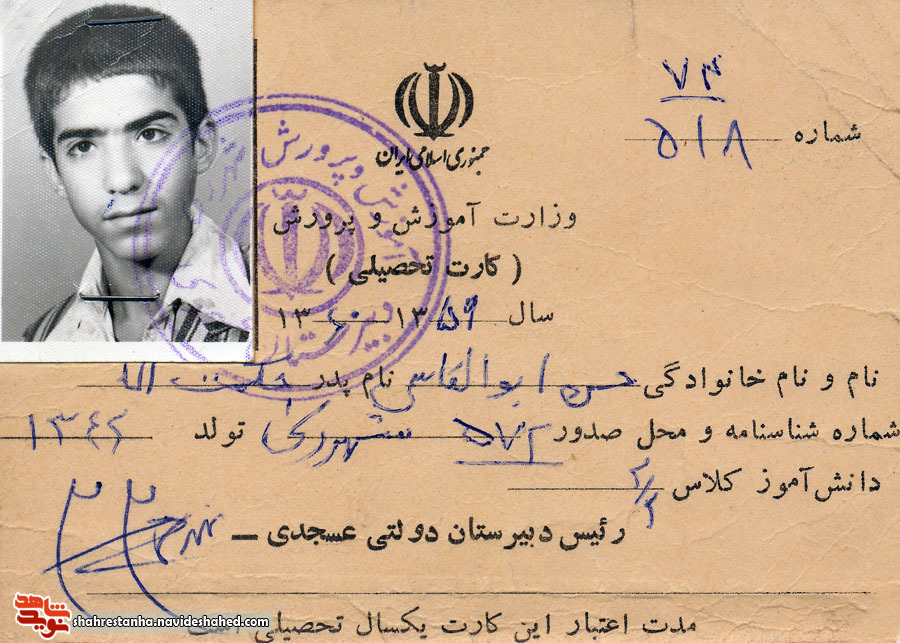 ۷۳
شماره ۵۱۸
جمهوری اسلامی ایران
وزارت آموزش و پرورش
( کارت تحصیلی )
سال ۱۳۵۹ ۱۳۶۰
نام و نام خانوادگی حسن ابوالقاسمی نام پدر حکمت الله
شماره شناسنامه و محل صدور ۵۷۲ تولد ۱۳۴۲
دانش‌آموز کلاس
رئیس دبیرستان دولتی عسجدی —
مدت اعتبار این کارت یکسال تحصیلی است
آموزش و پرورش
دبیرستان
نوید شاهد
shahrestanha.navideshahed.com